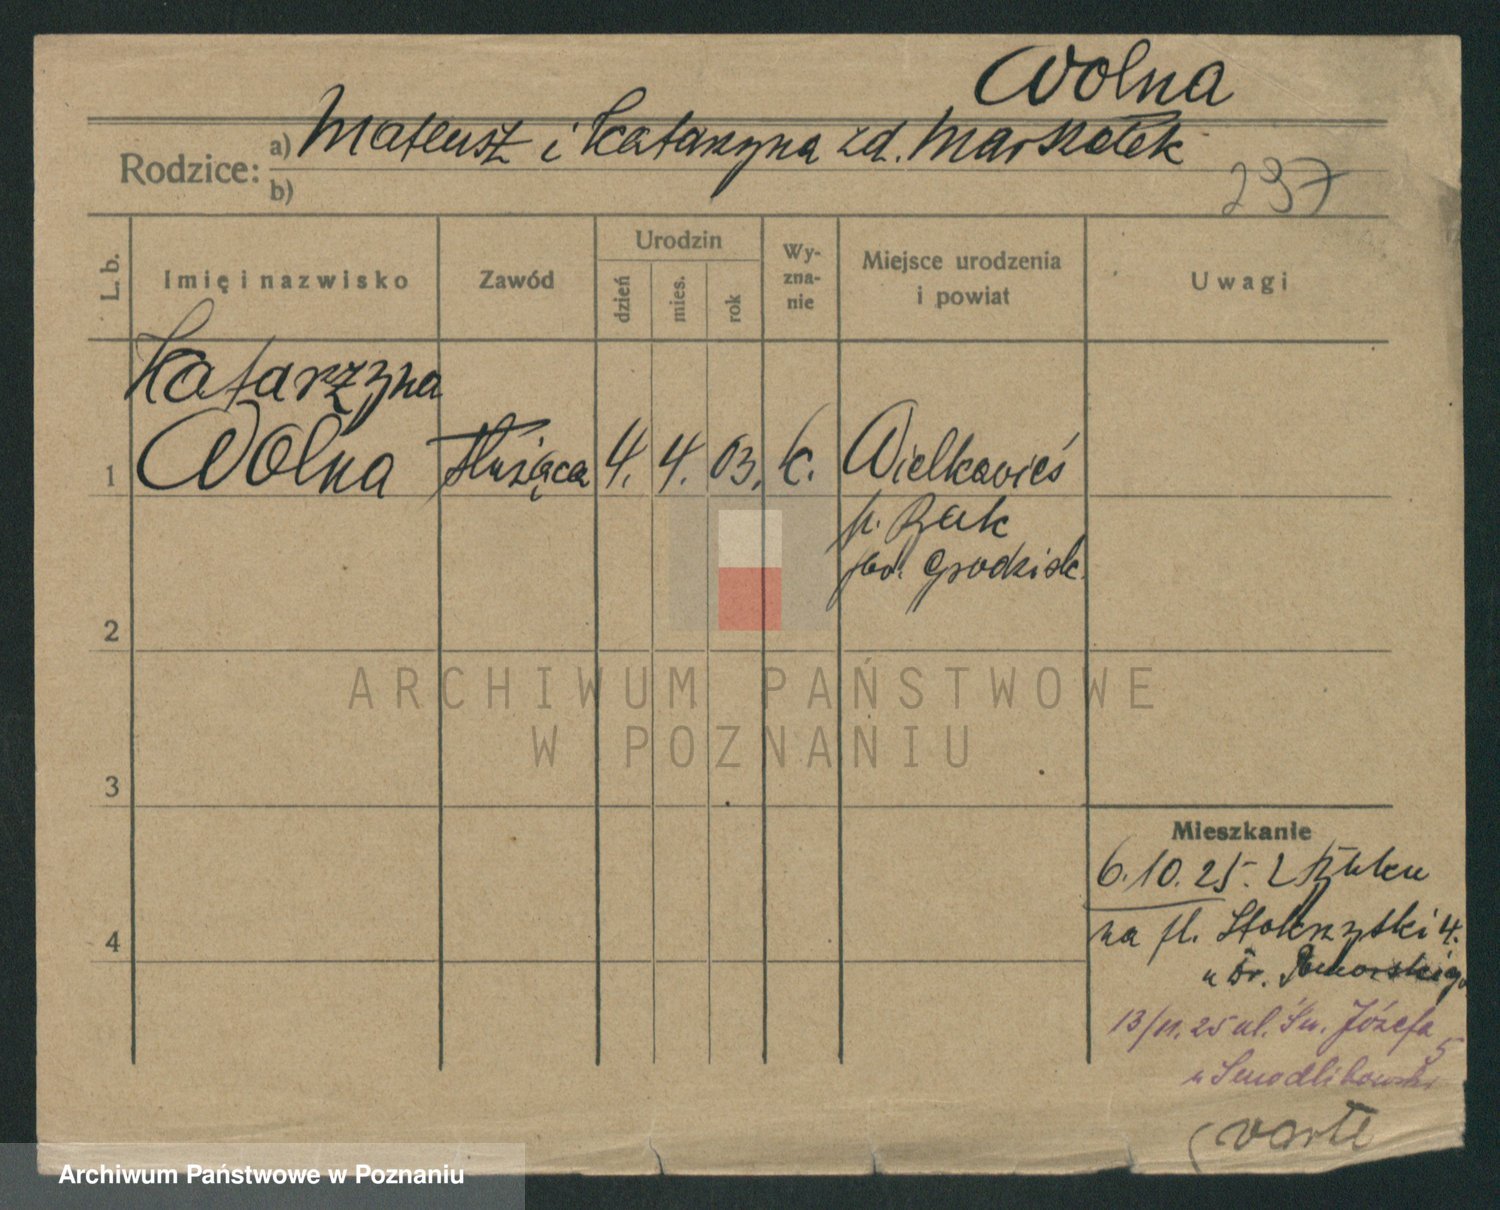 Wolna
Rodzice: a) Mateusz i Katarzyna zd. Marszałek
b)
237
L. b.
Imię i nazwisko
Zawód
Urodzin
dzień
mies.
rok
Wy-
zna-
nie
Miejsce urodzenia
i powiat
Uwagi
Katarzyna
1 Wolna służąca 4. 4. 03. k. Wielkawieś
p. Buk
pow. Grodzisk.
2
3
4
ARCHIWUM PAŃSTWOWE
W POZNANIU
Mieszkanie
6.10.25. z Buku
na pl. 4.
u Dr.
13/11.25 ul. Św. Józefa 5
u Smodlibowski
verte
Archiwum Państwowe w Poznaniu